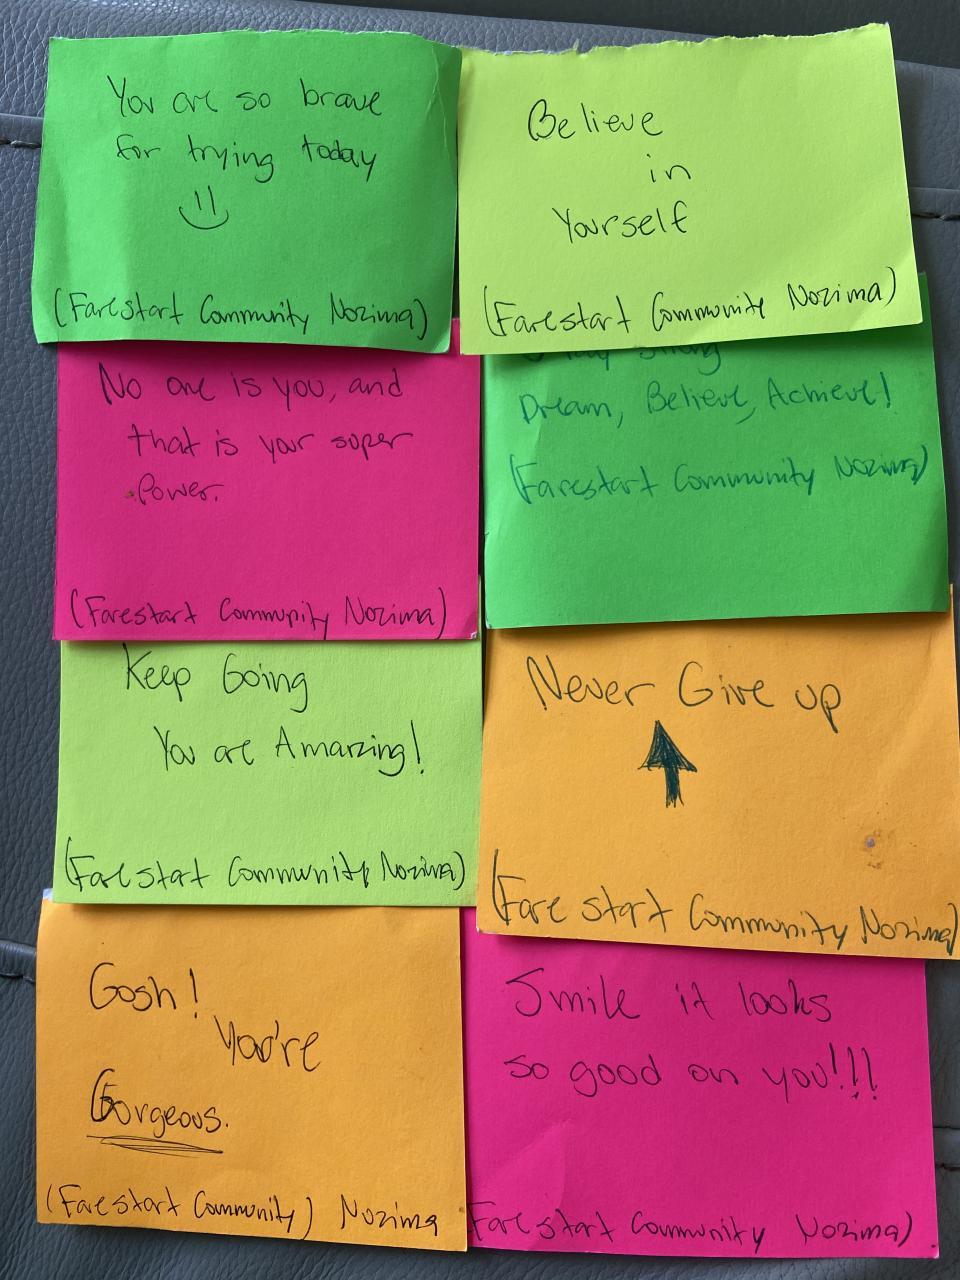 You are so brave
for trying today
(Farestart Community Nozima)
Believe
in
Yourself
(Farestart Community Nozima)
No one is you, and
that is your super
Power.
(Farestart Community Nozima)
Stay Strong
Dream, Believe, Achieve!
(Farestart Community Nozima)
Keep Going
You are Amazing!
(Farestart Community Nozima)
Never Give up
(Fare start Community Nozima)
Gosh!
You're
Gorgeous.
(Farestart Community) Nozima
Smile it looks
so good on you!!!
Farestart Community Nozima)